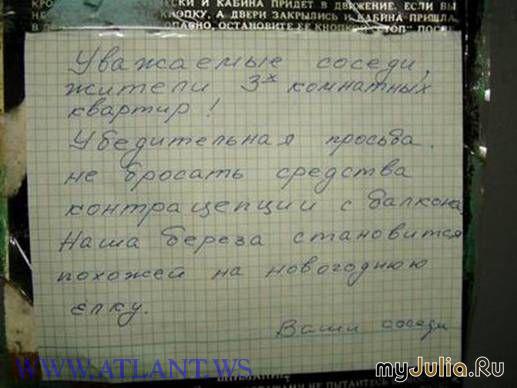 ЕСКИ И КАБИНА ПРИДЕТ В ДВИЖЕНИЕ. ЕСЛИ ВЫ
КНОПКУ, А ДВЕРИ ЗАКРЫЛИСЬ И КАБИНА ПРИШЛА
ОПАСНО, ОСТАНОВИТЕ ЕЕ КНОПКОЙ "СТОП"
Уважаемые соседи,
жители 3х комнатных
квартир!
Убедительная просьба
не бросать средства
контрацепции с балкона.
Наша береза становится
похожей на новогоднюю
ёлку.
Ваши соседи
WWW.ATLANT.WS
myJulia.Ru
НЕ ПЫТАЙТЕСЬ